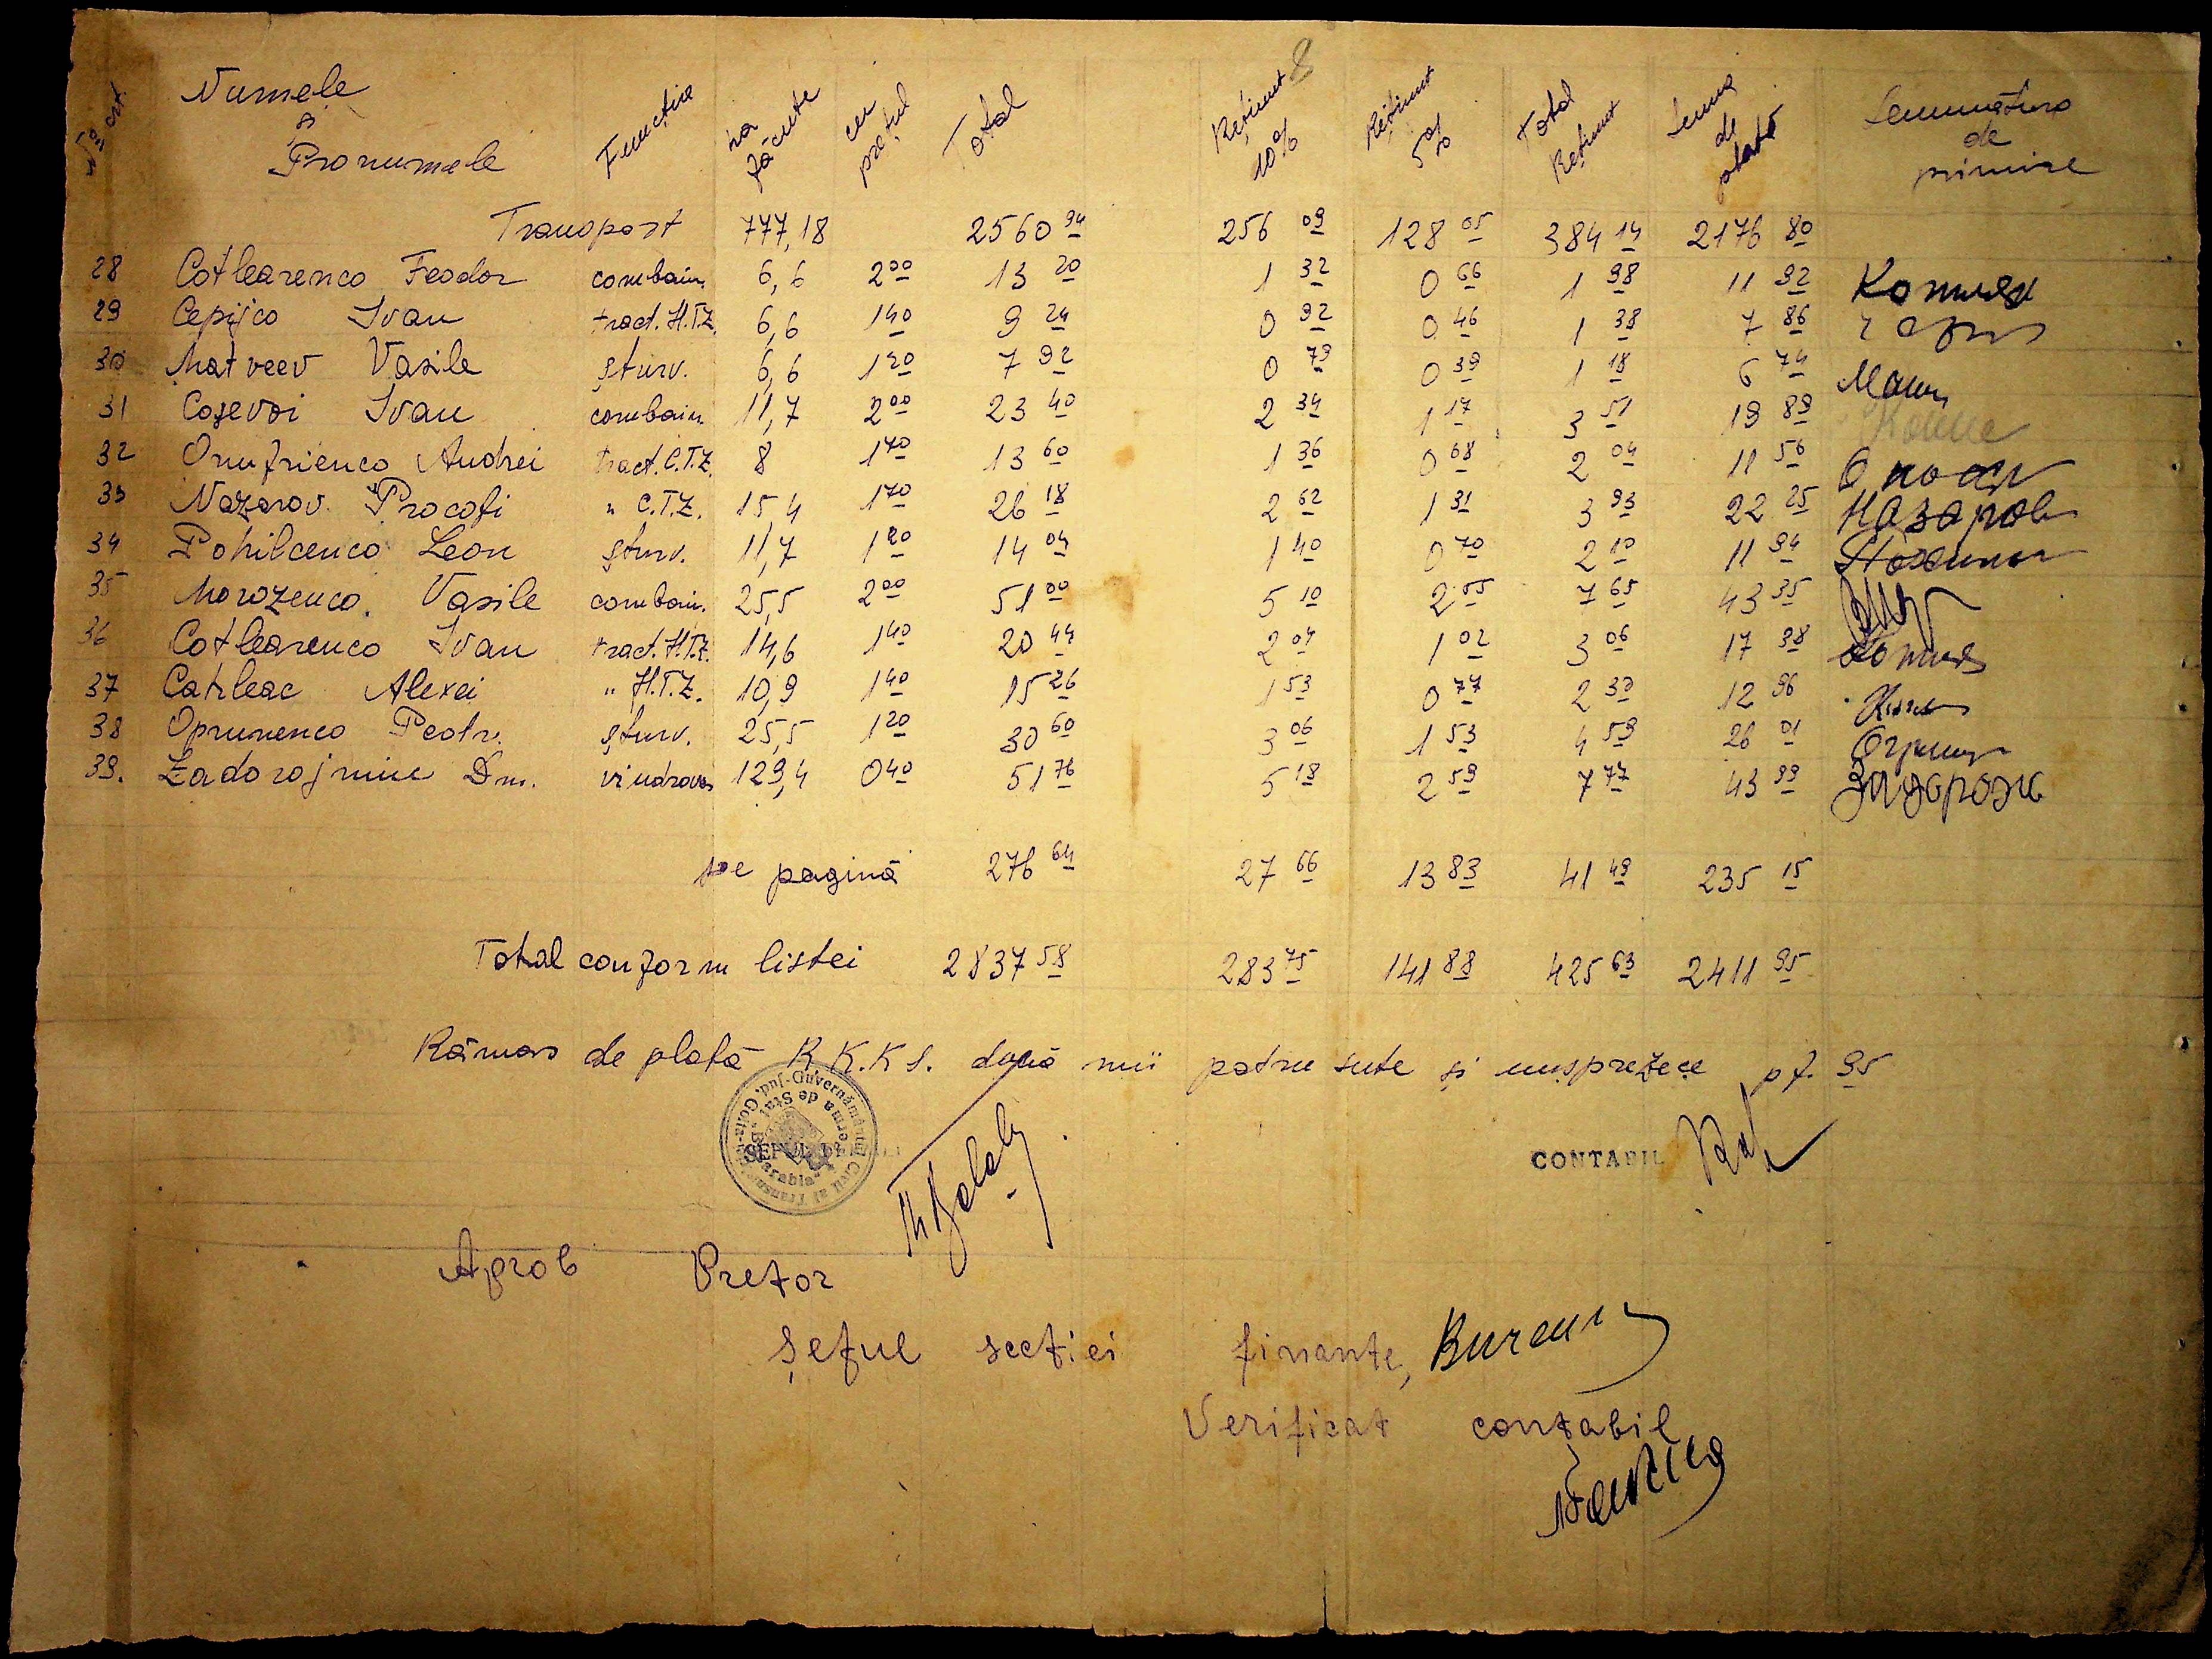 No crt. Numele și Pronumele Funcția ha făcute cu prețul Total Rețınut 10% Reținut 5% Total Reținut Suma de plată Semnătura de primire
8
Transport 777,18 2560 94 256 09 128 05 384 14 2176 80
28 Cotlearenco Feodor combain. 6,6 2 00 13 20 1 32 0 66 1 98 11 92
29 Cepijco Ivan tract. H.T.Z. 6,6 1 40 9 24 0 92 0 46 1 38 7 86
30 Matveev Vasile șturv. 6,6 1 20 7 92 0 79 0 39 1 18 6 74
31 Coșevoi Ivan combain. 11,7 2 00 23 40 2 34 1 17 3 51 19 89
32 Onufrienco Andrei tract. C.T.Z. 8 1 70 13 60 1 36 0 68 2 04 11 56
33 Nazarov Procofi " C.T.Z. 15,4 1 70 26 18 2 62 1 31 3 93 22 25 Назаров
34 Pohilcenco Leon șturv. 11,7 1 20 14 04 1 40 0 70 2 10 11 94
35 Morozenco Vasile combain. 25,5 2 00 51 00 5 10 2 55 7 65 43 35
36 Cotlearenco Ivan tract. H.T.Z. 14,6 1 40 20 44 2 04 1 02 3 06 17 38
37 Catileac Alexei " H.T.Z. 10,9 1 40 15 26 1 53 0 77 2 30 12 96
38 Oprunenco Peotr. șturv. 25,5 1 20 30 60 3 06 1 53 4 59 26 01
39. Zadorojniuc Dm. vindrover 129,4 0 40 51 76 5 18 2 59 7 77 43 99 Задорож
pe pagină 276 64 27 66 13 83 41 49 235 15
Total conform listei 2837 58 283 75 141 88 425 63 2411 95
Rămas de plată R.K.K.S. două mii patru sute și unsprezece pf. 95
CONTABIL
Aprob Pretor
Șeful secției finanțe,
Verificat contabil